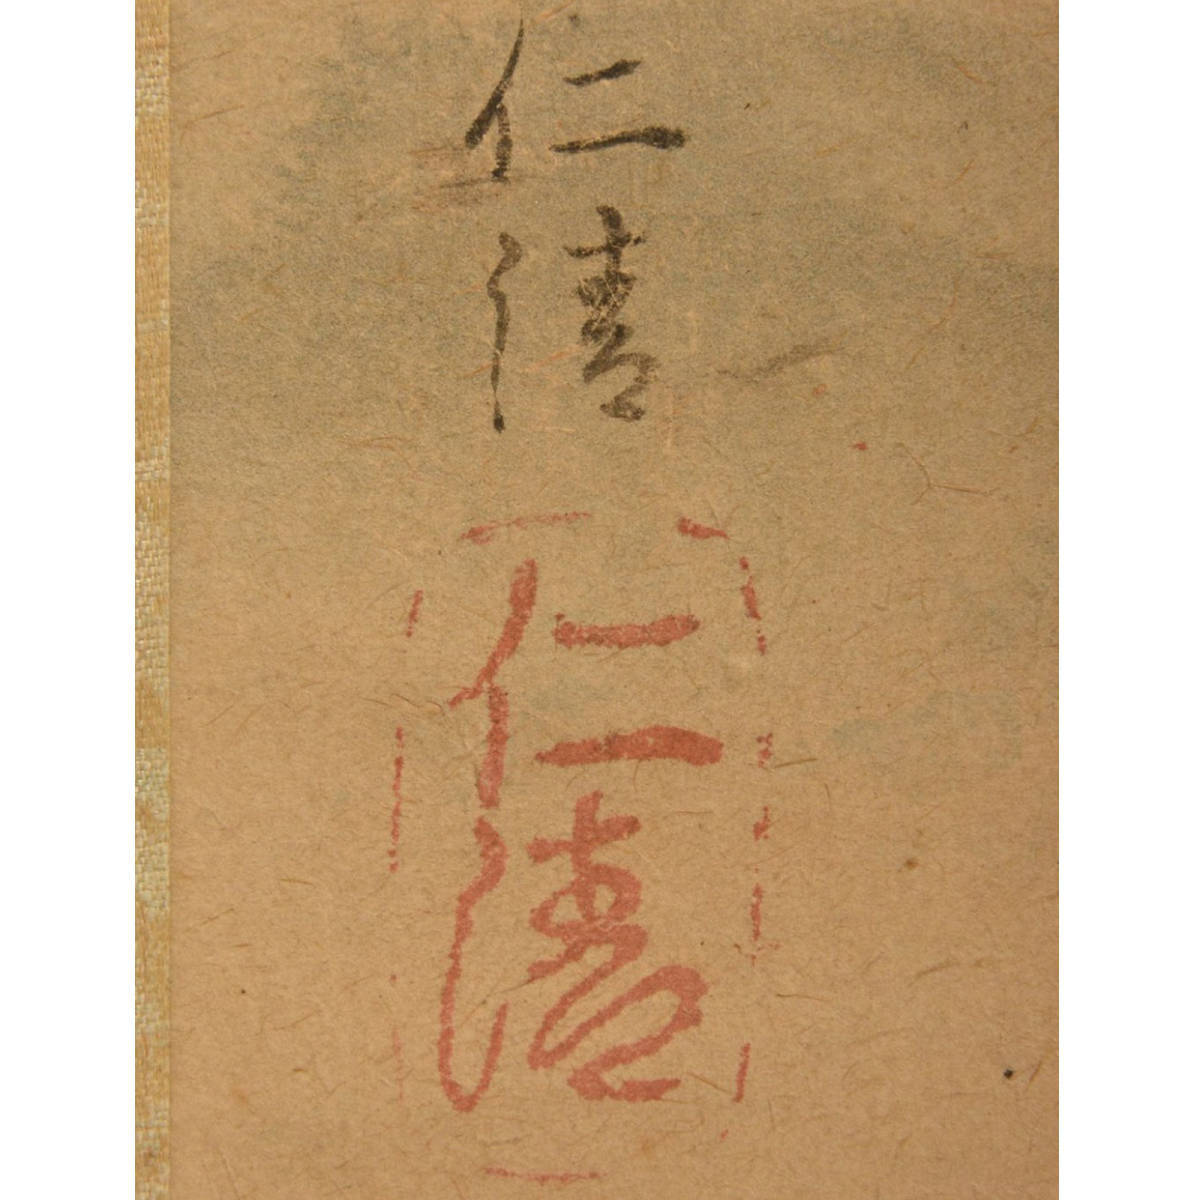 仁清
仁清